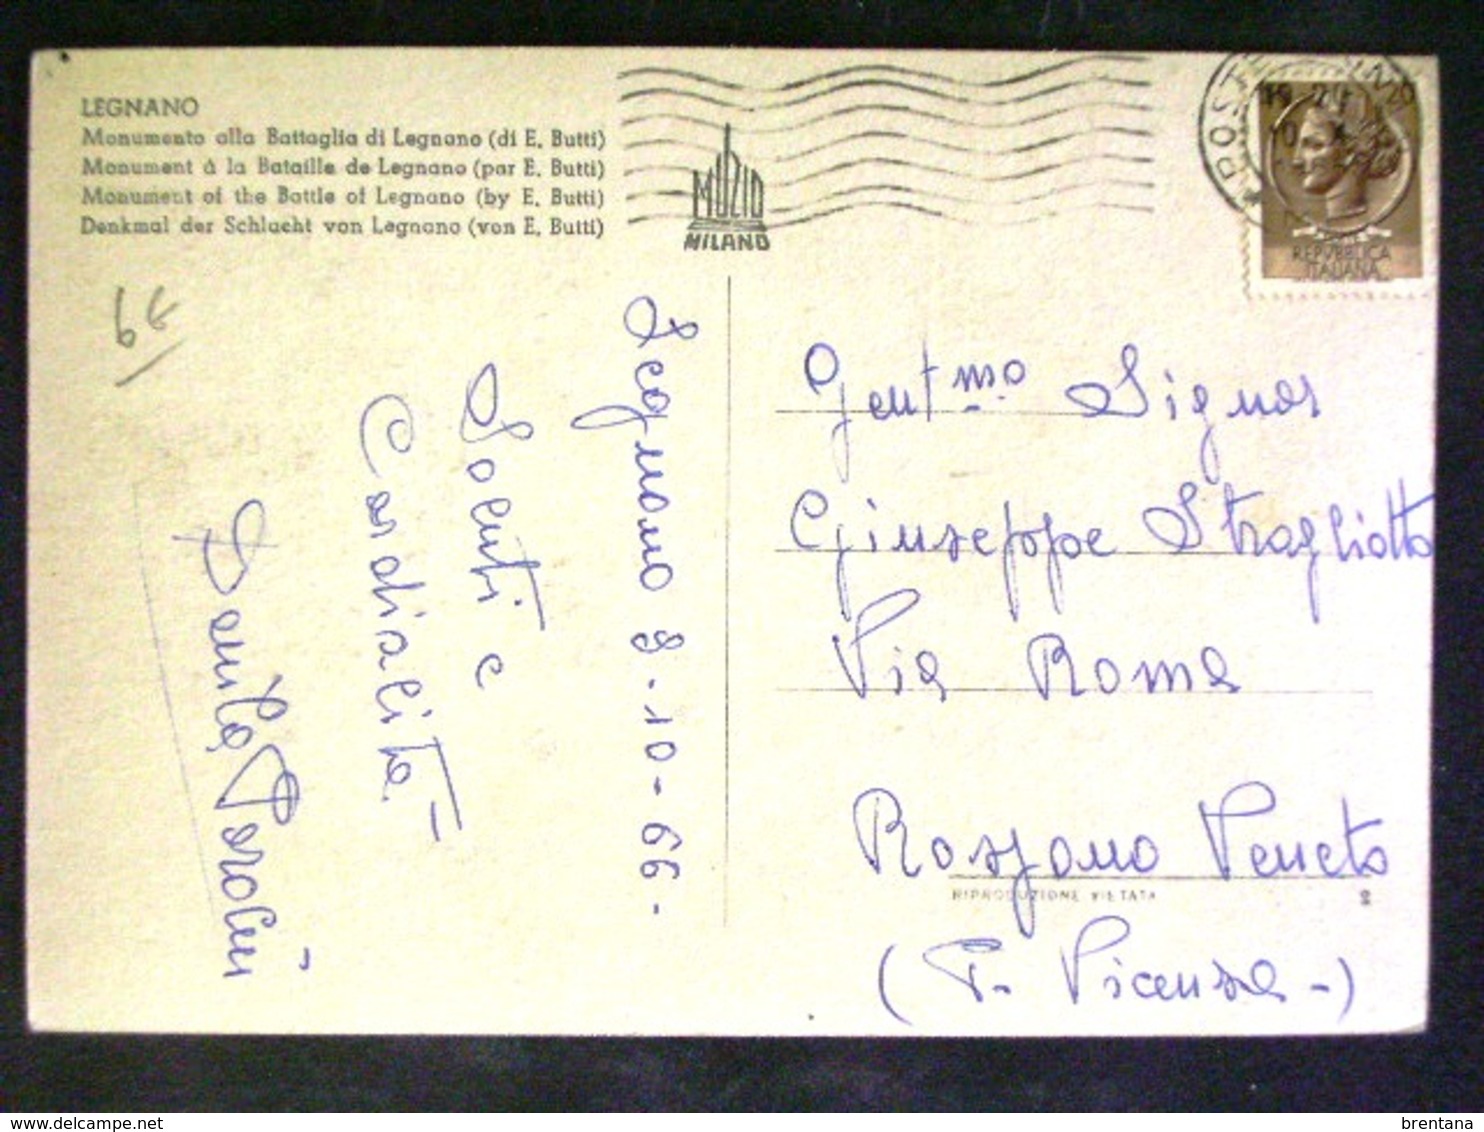 LEGNANO
Monumento alla Battaglia di Legnano (di E. Butti)
Monument à la Bataille de Legnano (par E. Butti)
Monument of the Battle of Legnano (by E. Butti)
Denkmal der Schlacht von Legnano (von E. Butti)
MUZIO
MILANO
POSTE
19-20
10
REPVBBLICA
ITALIANA
6€
Legnano 9-10-66-
Saluti e
Cordialità
Gent.mo Signor
Giuseppe Stragliotto
Via Roma
Rossano Veneto
RIPRODUZIONE VIETATA
(P. Vicenza-)
brentana